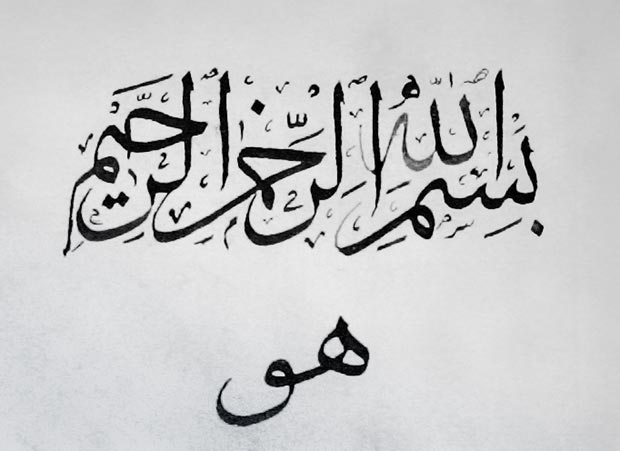 بِسْمِ اللهِ الرَّحْمٰنِ الرَّحِيْمِ
هو